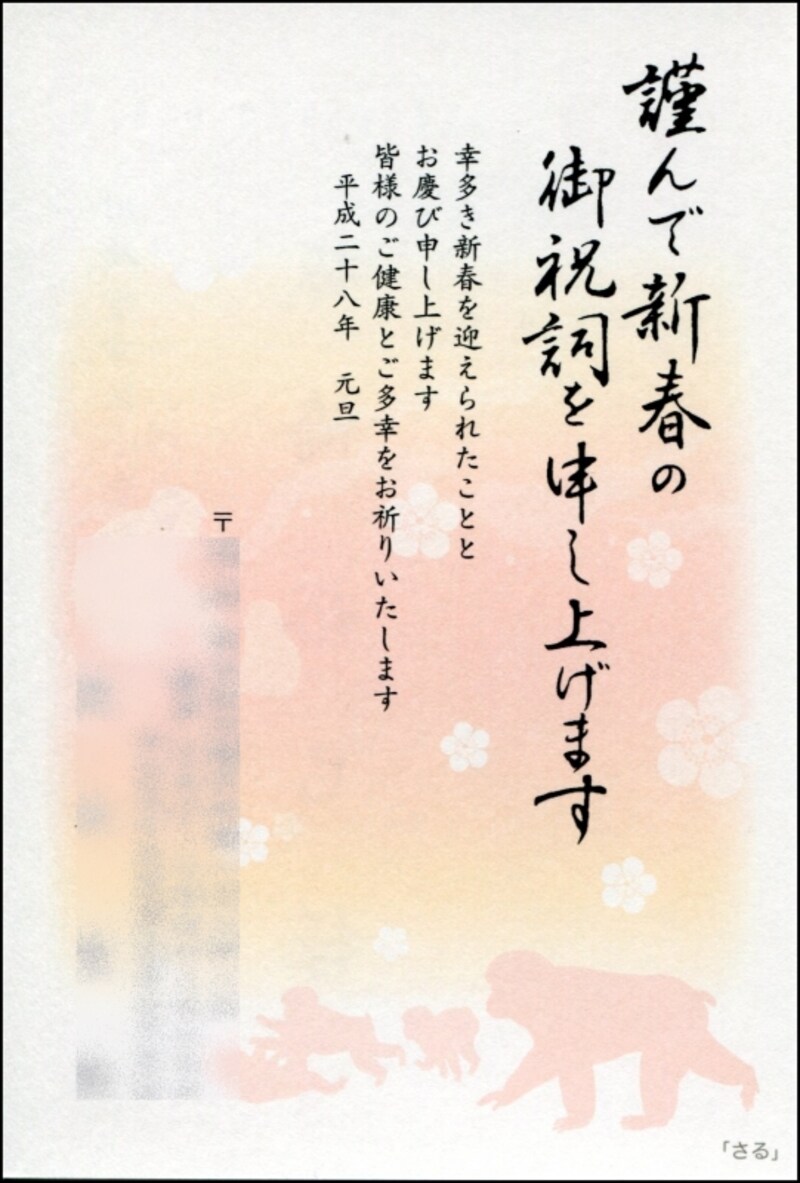 謹んで新春の
御祝詞を申し上げます
幸多き新春を迎えられたことと
お慶び申し上げます
皆様のご健康とご多幸をお祈りいたします
平成二十八年　元旦
〒
「さる」